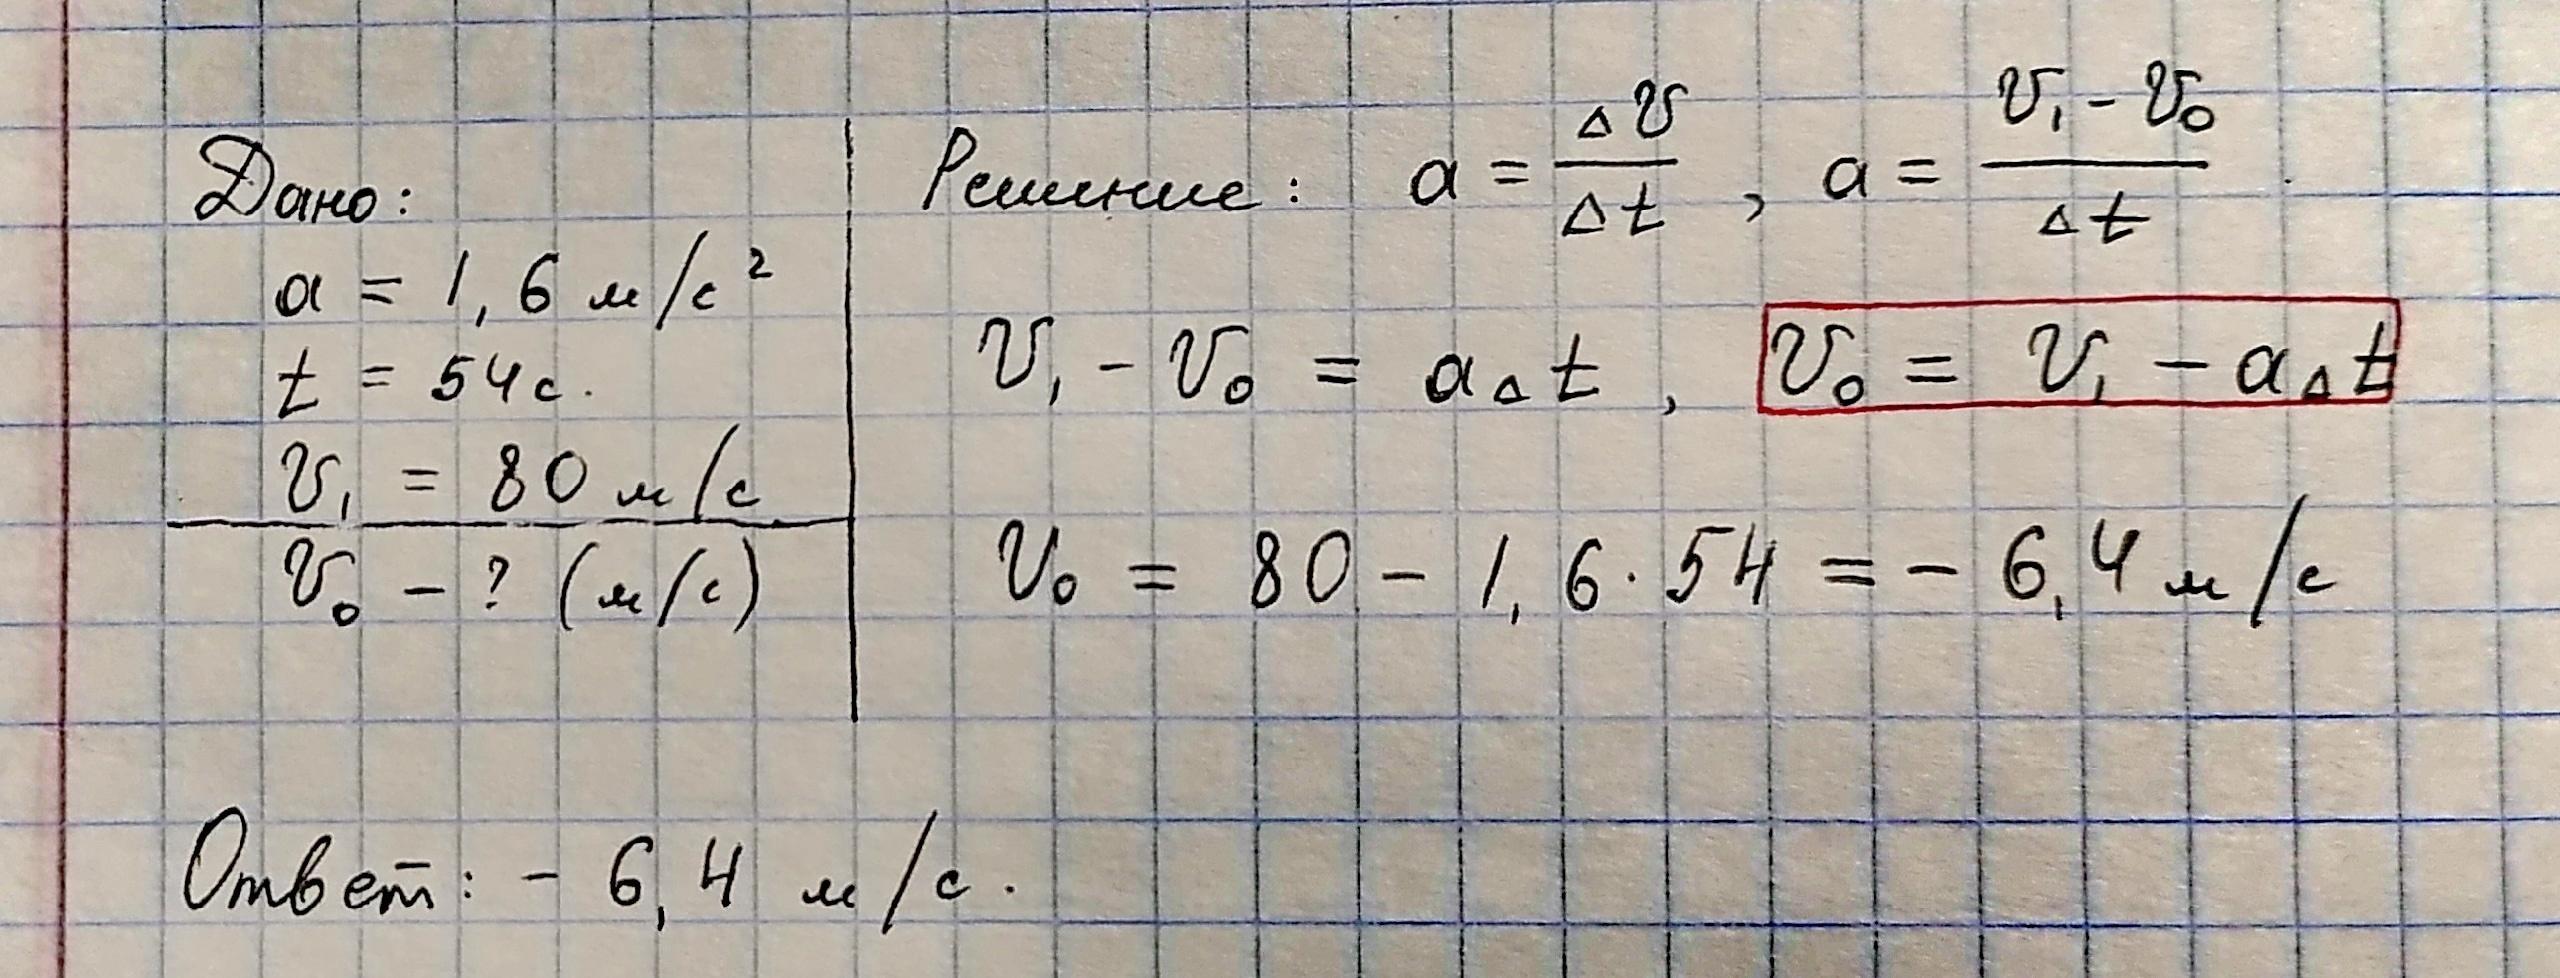 Дано:
a = 1,6 м/с²
t = 54 с.
v₁ = 80 м/с
v₀ - ? (м/с)
Решение: a = Δv/Δt, a = (v₁ - v₀)/Δt.
v₁ - v₀ = aΔt, v₀ = v₁ - aΔt
v₀ = 80 - 1,6 · 54 = - 6,4 м/с
Ответ: - 6,4 м/с.